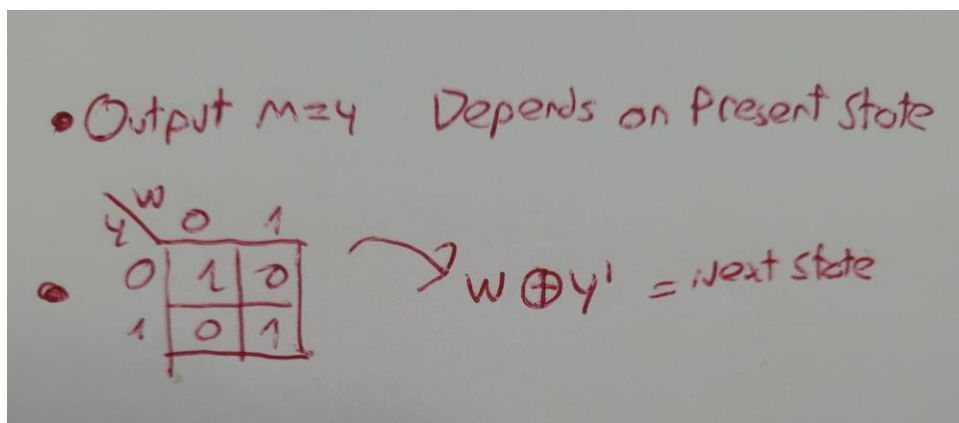 • Output m=y Depends on Present State
y\w 0 1
0 1 0
• w⊕y' = Next state
1 0 1